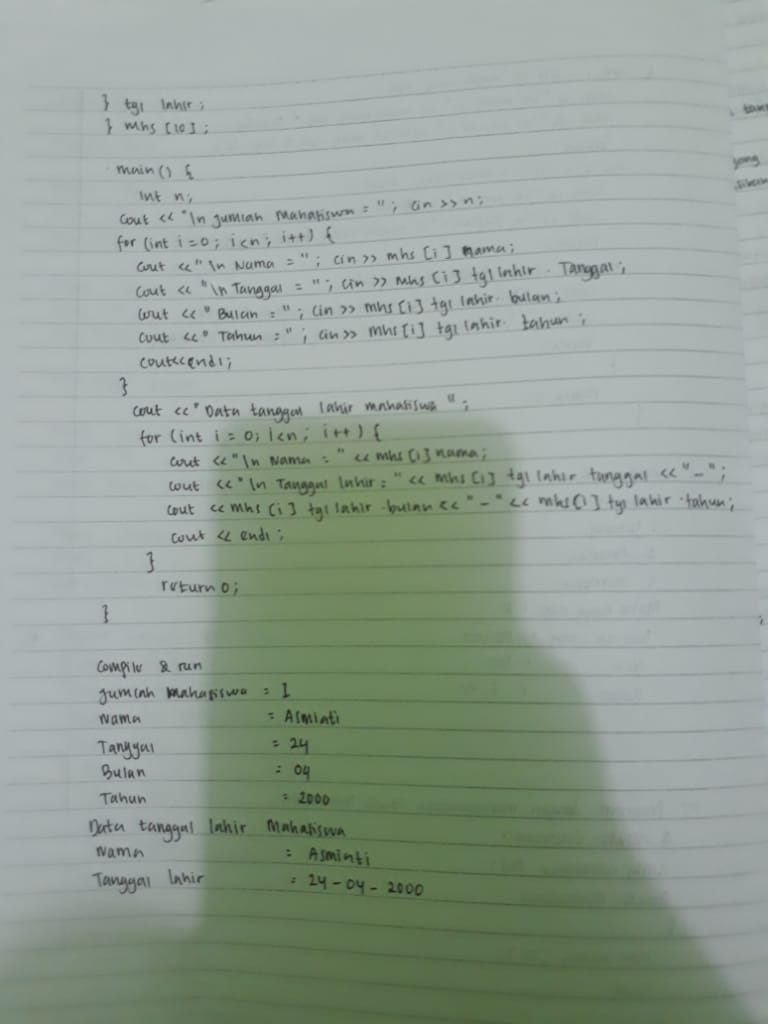 } tgl lahir;
} mhs [10];
main() {
int n;
cout << "\n jumlah Mahasiswa = "; cin >> n;
for (int i = 0; i<n; i++) {
cout << "\n Nama = "; cin >> mhs [i] nama;
cout << "\n Tanggal = "; cin >> mhs [i] tgl lahir . Tanggal;
cout << " Bulan = "; cin >> mhs [i] tgl lahir . bulan;
cout << " Tahun = "; cin >> mhs [i] tgl lahir . tahun;
cout<<endl;
}
cout << "Data tanggal lahir mahasiswa ";
for (int i = 0; i<n; i++) {
cout << "\n Nama = " << mhs [i] nama;
cout << "\n Tanggal lahir = " << mhs [i] tgl lahir tanggal << "-";
cout << mhs [i] tgl lahir . bulan << "-" << mhs [i] tgl lahir . tahun;
cout << endl;
}
return 0;
}
Compile & run
jumlah Mahasiswa = 1
Nama = Asmiati
Tanggal = 24
Bulan = 04
Tahun = 2000
Data tanggal lahir Mahasiswa
Nama = Asmiati
Tanggal lahir = 24-04-2000